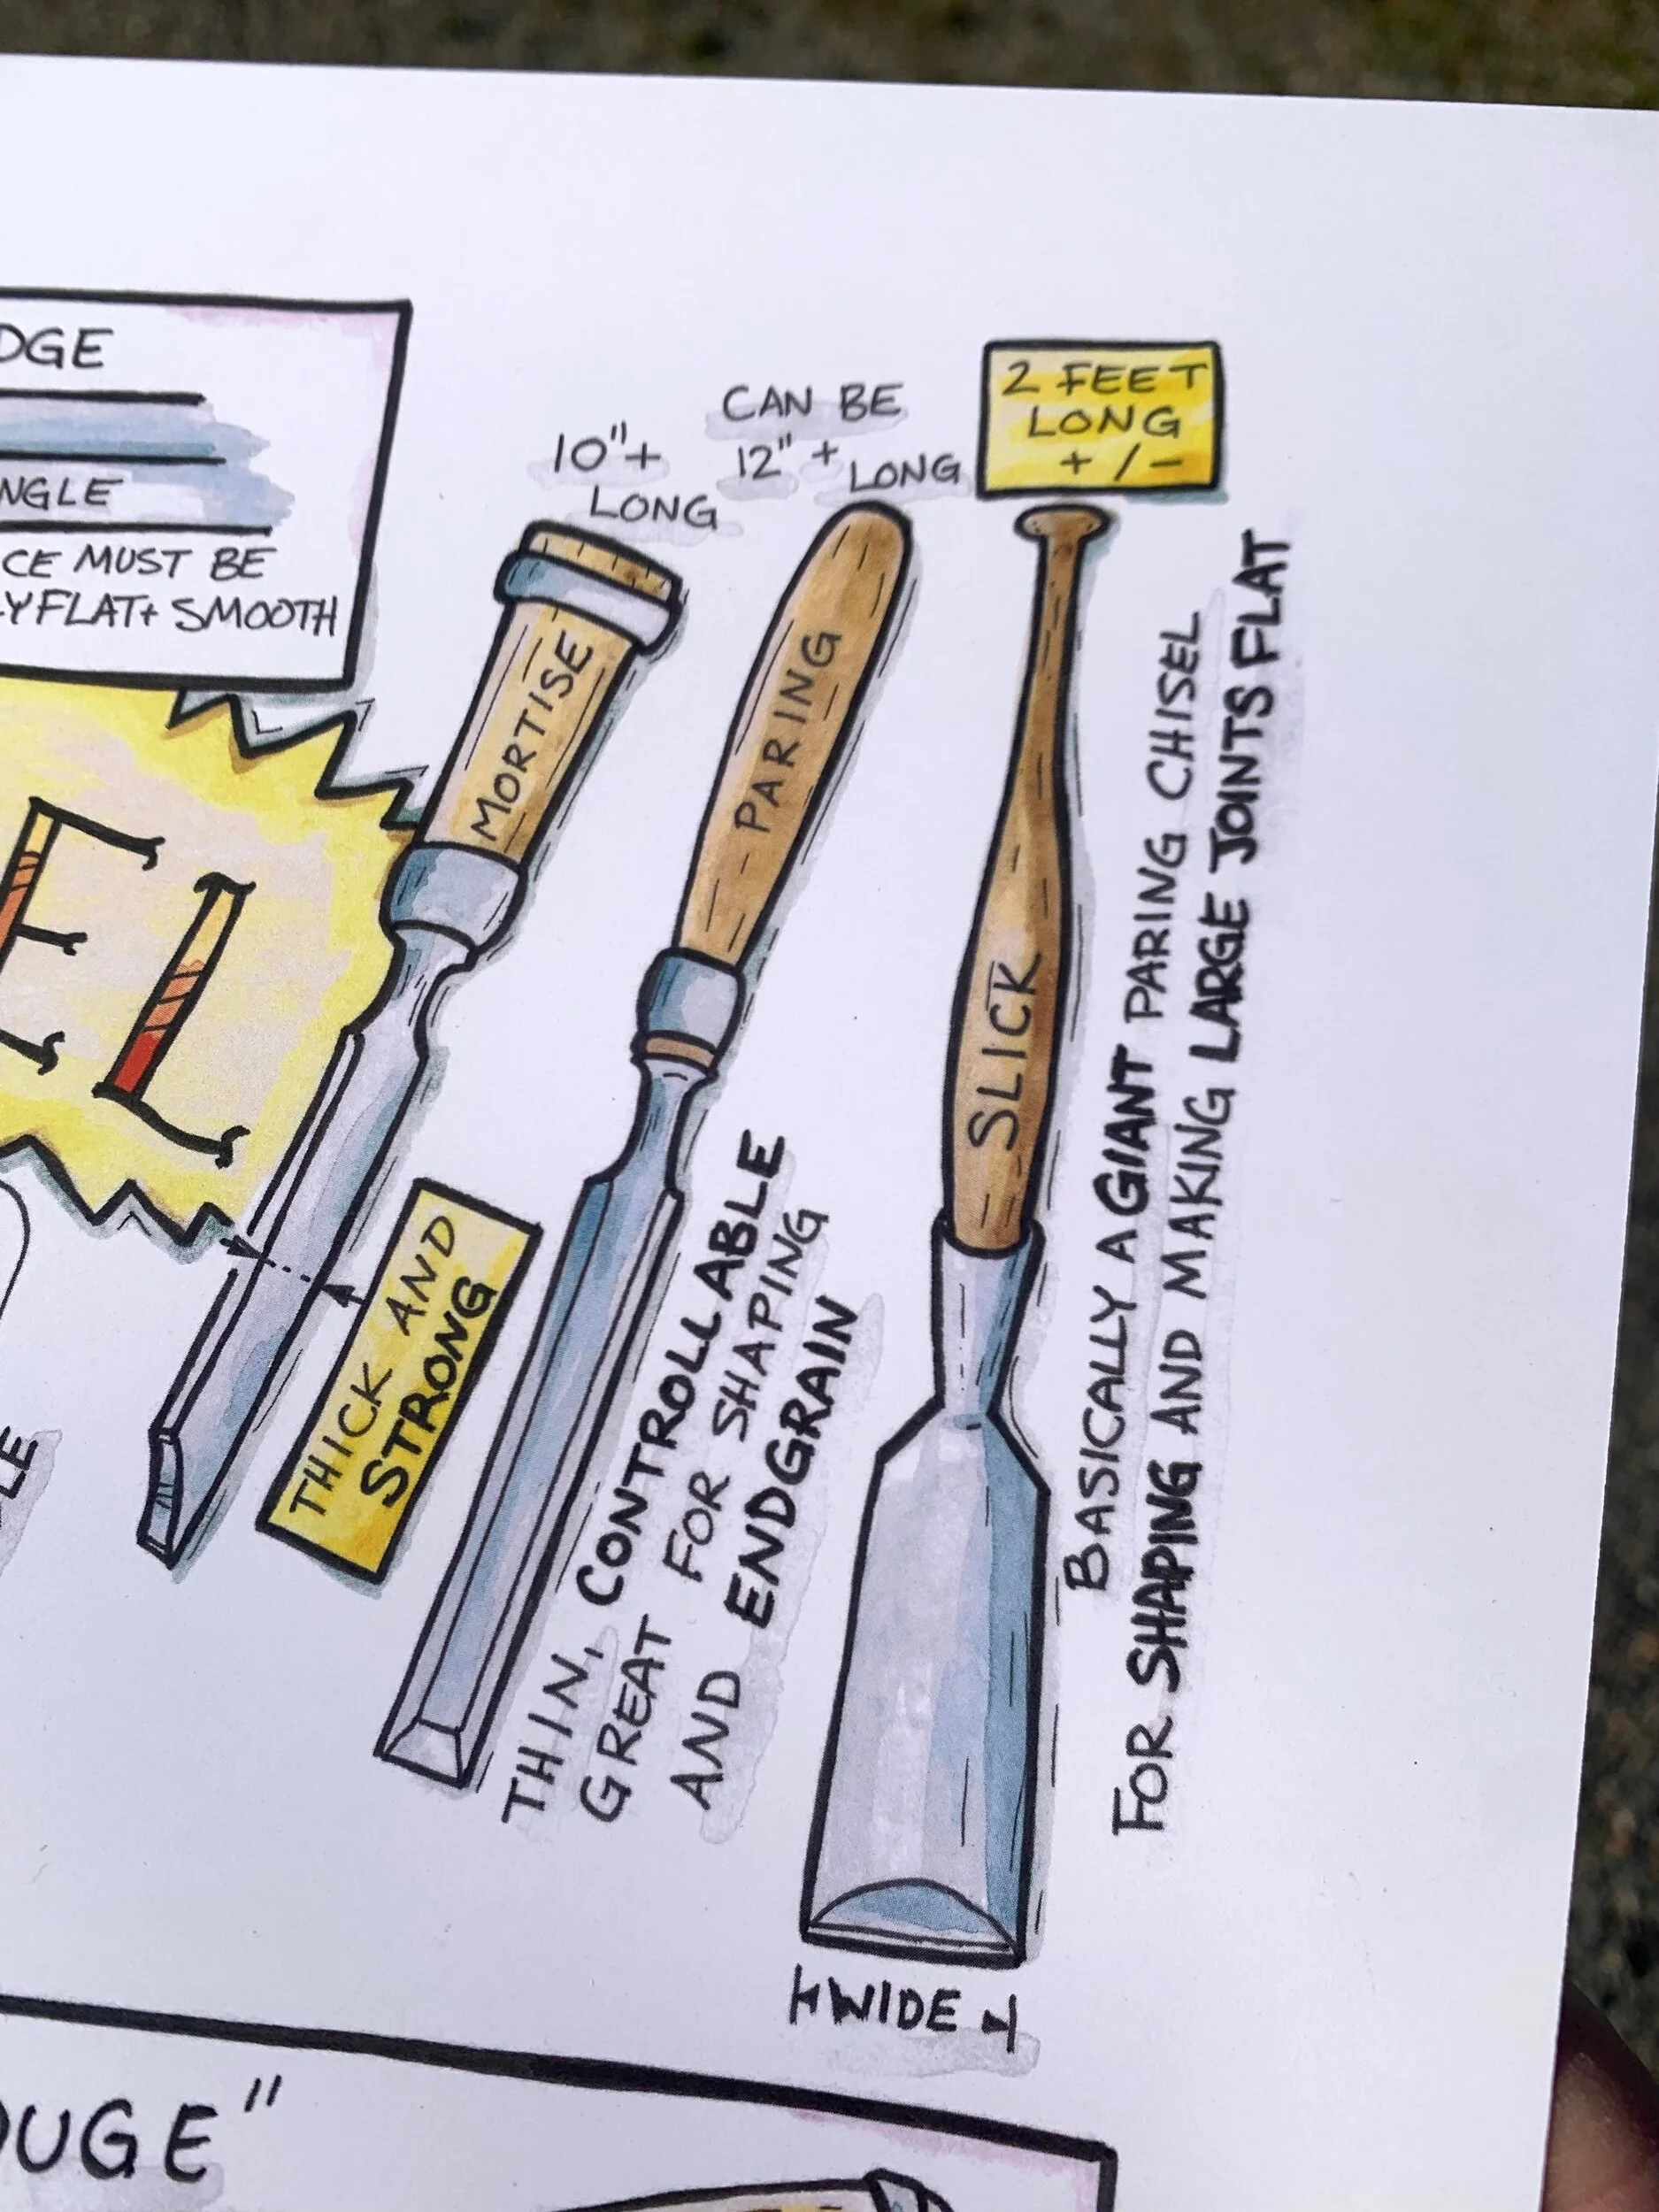 DGE
NGLE
CE MUST BE
LY FLAT + SMOOTH
EL
10"+
LONG
MORTISE
THICK AND
STRONG
CAN BE
12" + LONG
PARING
THIN, CONTROLLABLE
GREAT FOR SHAPING
AND ENDGRAIN
2 FEET
LONG
+/-
SLICK
BASICALLY A GIANT PARING CHISEL
FOR SHAPING AND MAKING LARGE JOINTS FLAT
WIDE
LE
OUGE"